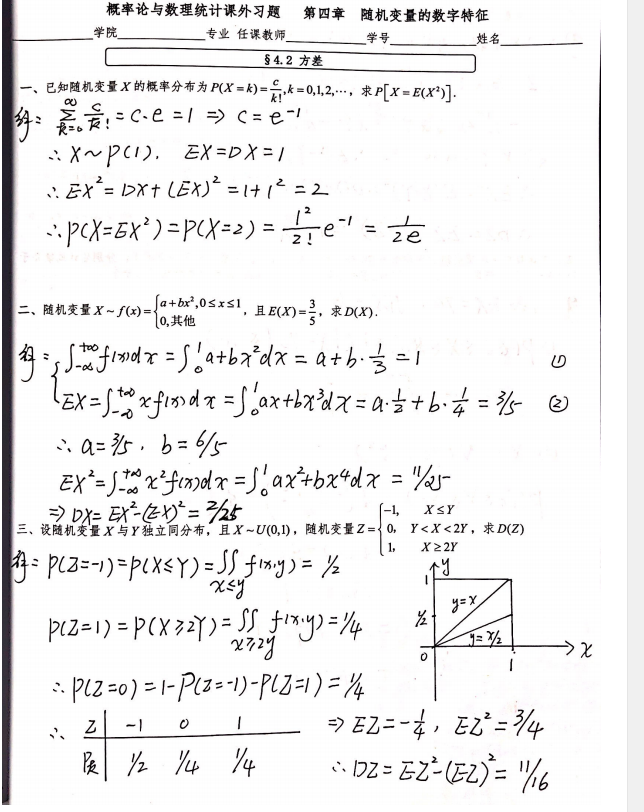 概率论与数理统计课外习题 第四章 随机变量的数字特征
学院 专业 任课教师 学号 姓名
§4.2 方差
一、已知随机变量 X 的概率分布为 P(X=k)=c/k!,k=0,1,2,⋯，求P[X=E(X²)].
解: ∑_{k=0}^{∞} c/k! = c·e = 1 ⇒ c = e⁻¹
∴ X~P(1). EX=DX=1
∴ EX²=DX+(EX)²=1+1²=2
∴ P(X=EX²)=P(X=2)=1²/2! e⁻¹ = 1/2e
二、随机变量 X~f(x)={a+bx²,0≤x≤1
0,其他
，且E(X)=3/5，求D(X).
解: {∫_{-∞}^{+∞} f(x)dx=∫_0^1 a+bx²dx=a+b·1/3=1 ①
EX=∫_{-∞}^{+∞} xf(x)dx=∫_0^1 ax+bx³dx=a·1/2+b·1/4=3/5 ②
∴ a=3/5, b=6/5
EX²=∫_{-∞}^{+∞} x²f(x)dx=∫_0^1 ax²+bx⁴dx=11/25
⇒ DX=EX²-(EX)²=2/25
三、设随机变量 X 与 Y 独立同分布，且 X~U(0,1)，随机变量 Z={-1, X≤Y
0, Y<X<2Y
1, X≥2Y
，求D(Z)
解: P(Z=-1)=P(X≤Y)=∬_{x≤y} f(x,y)=1/2
P(Z=1)=P(X≥2Y)=∬_{x≥2y} f(x,y)=1/4
y
1
1/2
y=x
y=x/2
0
1
x
∴ P(Z=0)=1-P(Z=-1)-P(Z=1)=1/4
∴ Z | -1 0 1
1/2 1/4 1/4
⇒ EZ=-1/4, EZ²=3/4
∴ DZ=EZ²-(EZ)²=11/16